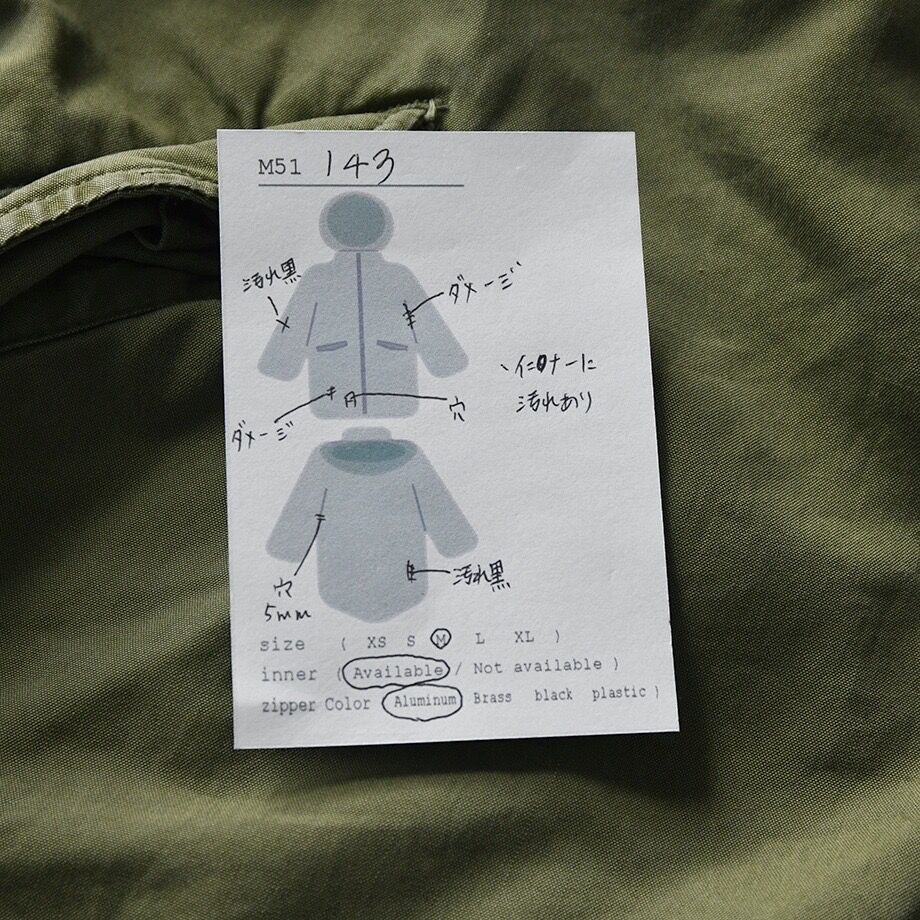 M51 143
汚れ黒
ダメージ
、インナーに
汚れあり
穴
ダメージ
汚れ黒
穴
5mm
size ( XS S M L XL )
inner ( Available / Not available )
zipper Color ( Aluminum Brass black plastic )